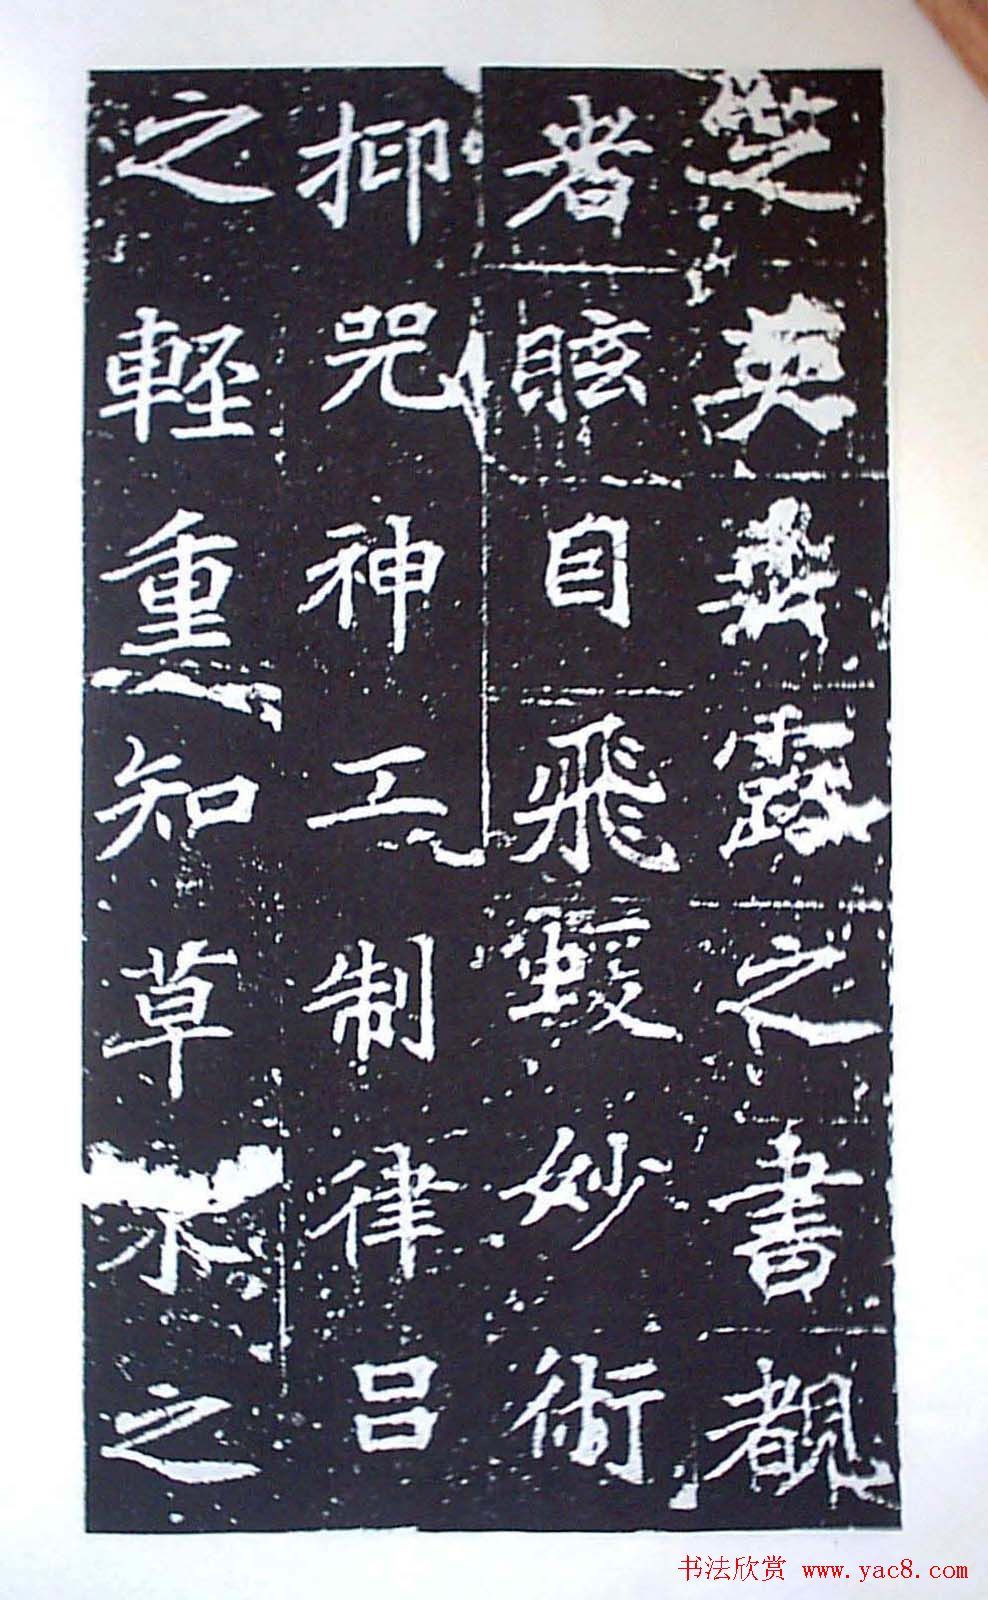 芝英垂露之書覩
者眩目飛妙術
抑咒神工制律呂
之輕重知草木之
书法欣赏 www.yac8.com